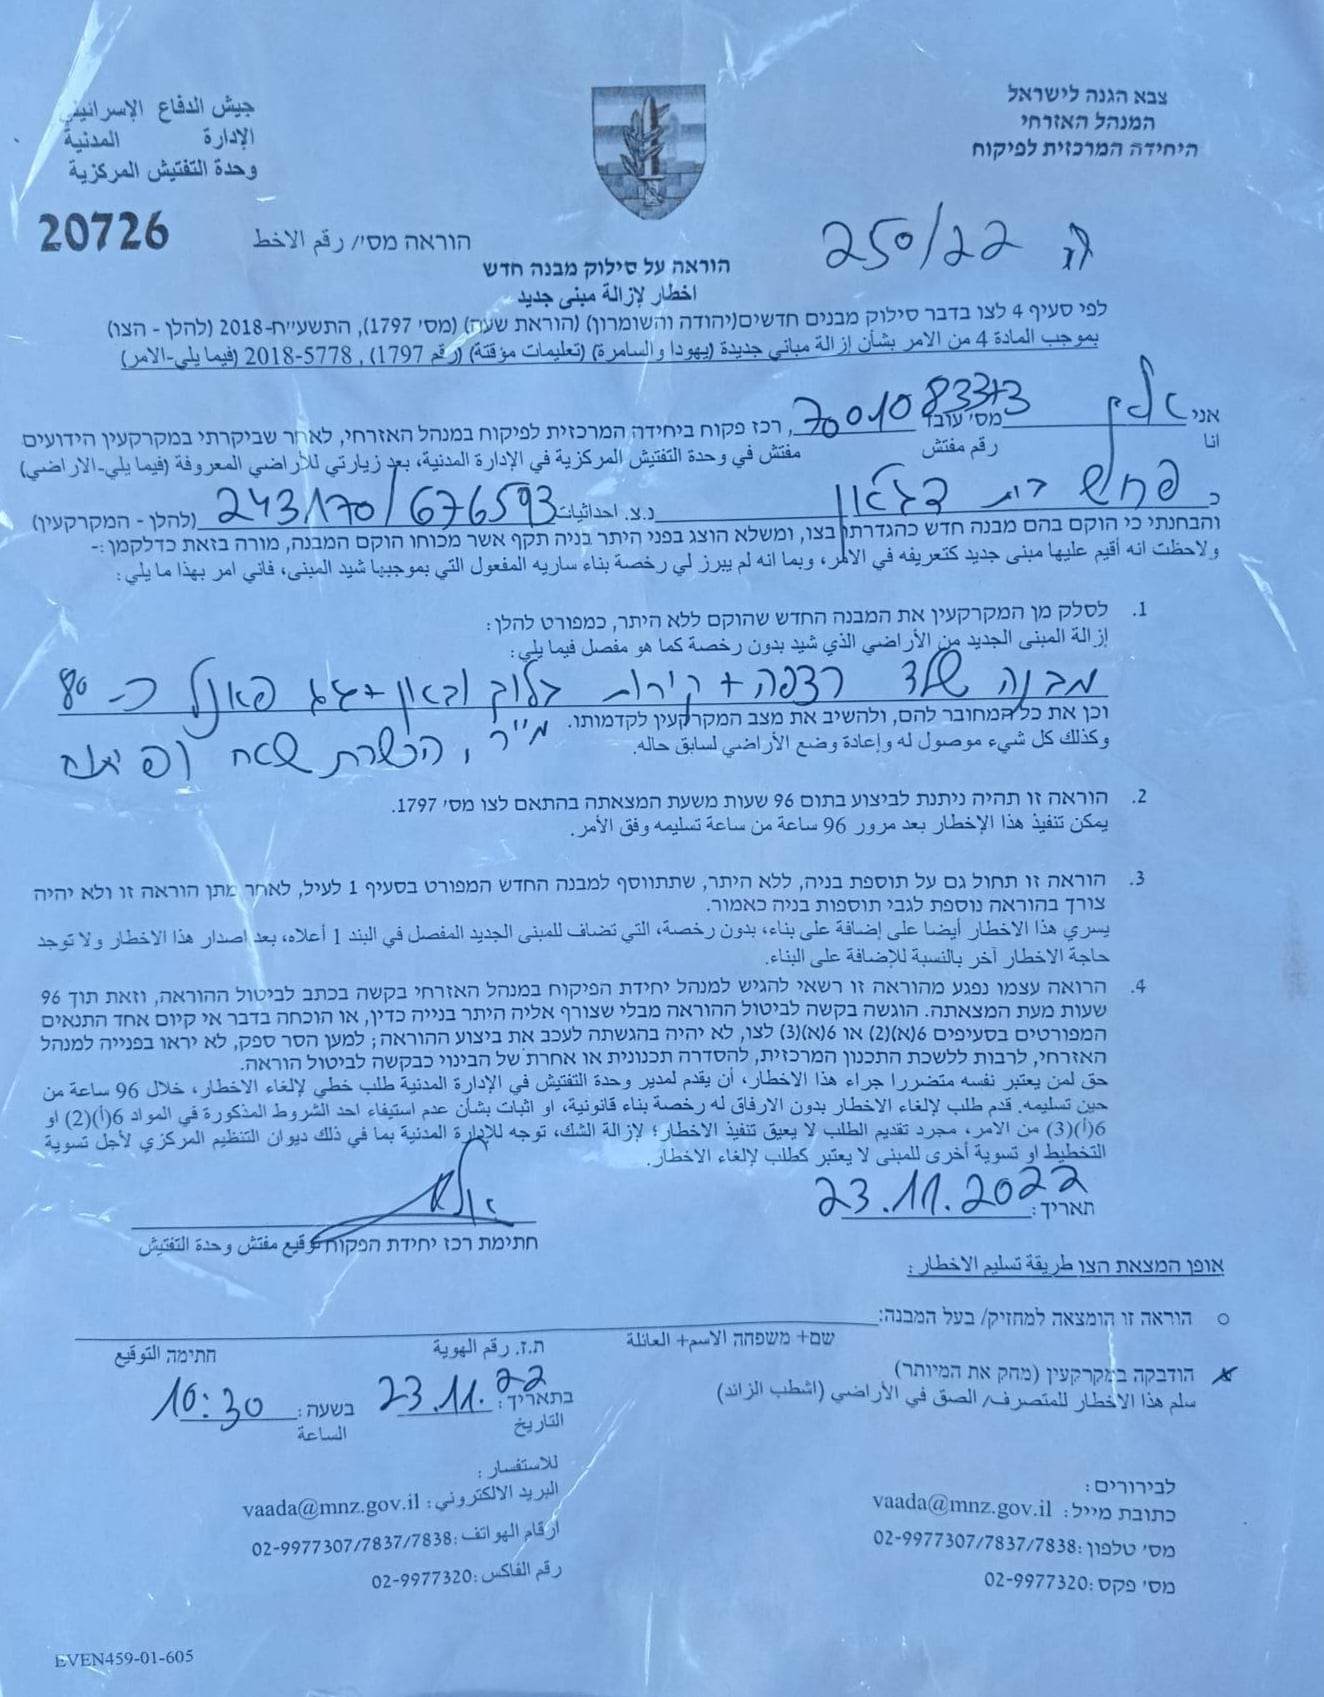 צבא הגנה לישראל
המנהל האזרחי
היחידה המרכזית לפיקוח
جيش الدفاع الإسرائيلي
الإدارة المدنية
وحدة التفتيش المركزية
250/22
הוראה מס'/ رقم الاخط 20726
הוראה על סילוק מבנה חדש
اخطار لإزالة مبنى جديد
לפי סעיף 4 לצו בדבר סילוק מבנים חדשים(יהודה והשומרון) (הוראת שעה) (מס' 1797), התשע״ח-2018 (להלן - הצו)
بموجب المادة 4 من الامر بشأن إزالة مباني جديدة (يهودا والسامرة) (تعليمات مؤقتة) (رقم 1797), 2018-5778 (فيما يلي-الامر)
אני מס' עובד 701083373, רכז פקוח ביחידה המרכזית לפיקוח במנהל האזרחי, לאחר שביקרתי במקרקעין הידועים
انا رقم مفتش مفتش في وحدة التفتيش المركزية في الإدارة المدنية، بعد زيارتي للأراضي المعروفة (فيما يلي-الاراضي)
כ בית דג'אן נ.צ. احداثيات 243170/676593 (להלן - המקרקעין)
והבחנתי כי הוקם בהם מבנה חדש כהגדרתו בצו, ומשלא הוצג בפני היתר בניה תקף אשר מכוחו הוקם המבנה, מורה בזאת כדלקמן:-
ولاحظت انه أقيم عليها مبنى جديد كتعريفه في الامر، وبما انه لم يبرز لي رخصة بناء ساريه المفعول التي بموجبها شيد المبنى، فاني امر بهذا ما يلي:
1. לסלק מן המקרקעין את המבנה החדש שהוקם ללא היתר, כמפורט להלן:
إزالة المبنى الجديد من الأراضي الذي شيد بدون رخصة كما هو مفصل فيما يلي:
מבנה שלד רצפה + קירות בלוק ובאטון + גג פאנל כ- 80
וכן את כל המחובר להם, ולהשיב את מצב המקרקעין לקדמותו. מ״ר, הכשרת שטח ופיתוח
وكذلك كل شيء موصول له وإعادة وضع الأراضي لسابق حاله.
2. הוראה זו תהיה ניתנת לביצוע בתום 96 שעות משעת המצאתה בהתאם לצו מס' 1797.
يمكن تنفيذ هذا الإخطار بعد مرور 96 ساعة من ساعة تسليمه وفق الأمر.
3. הוראה זו תחול גם על תוספת בניה, ללא היתר, שתתווסף למבנה החדש המפורט בסעיף 1 לעיל, לאחר מתן הוראה זו ולא יהיה
צורך בהוראה נוספת לגבי תוספות בניה כאמור.
يسري هذا الاخطار أيضا على إضافة على بناء، بدون رخصة، التي تضاف للمبنى الجديد المفصل في البند 1 أعلاه، بعد اصدار هذا الاخطار ولا توجد
حاجة الاخطار آخر بالنسبة للإضافة على البناء.
4. הרואה עצמו נפגע מהוראה זו רשאי להגיש למנהל יחידת הפיקוח במנהל האזרחי בקשה בכתב לביטול ההוראה, וזאת תוך 96
שעות מעת המצאתה. הוגשה בקשה לביטול ההוראה מבלי שצורף אליה היתר בנייה כדין, או הוכחה בדבר אי קיום אחד התנאים
המפורטים בסעיפים 6(א)(2) או 6(א)(3) לצו, לא יהיה בהגשתה לעכב את ביצוע ההוראה; למען הסר ספק, לא יראו בפנייה למנהל
האזרחי, לרבות ללשכת התכנון המרכזית, להסדרה תכנונית או אחרת של הבינוי כבקשה לביטול הוראה.
حق لمن يعتبر نفسه متضررا جراء هذا الاخطار، أن يقدم لمدير وحدة التفتيش في الإدارة المدنية طلب خطي لإلغاء الاخطار، خلال 96 ساعة من
حين تسليمه. قدم طلب لإلغاء الاخطار بدون الارفاق له رخصة بناء قانونية، او اثبات بشأن عدم استيفاء احد الشروط المذكورة في المواد 6(أ)(2) او
6(أ)(3) من الامر، مجرد تقديم الطلب لا يعيق تنفيذ الاخطار؛ لإزالة الشك، توجه للإدارة المدنية بما في ذلك ديوان التنظيم المركزي لأجل تسوية
التخطيط او تسوية أخرى للمبنى لا يعتبر كطلب لإلغاء الاخطار.
תאריך: 23.11.2022
חתימת רכז יחידת הפקוח توقيع مفتش وحدة التفتيش
אופן המצאת הצו طريقة تسليم الاخطار:
הוראה זו הומצאה למחזיק/ בעל המבנה:
שם+ משפחה الاسم+ العائلة ת.ז. رقم الهوية חתימה التوقيع
הודבקה במקרקעין (מחק את המיותר) בתאריך: 23.11.22 בשעה: 10:30
سلم هذا الاخطار للمتصرف/ الصق في الأراضي (اشطب الزائد) التاريخ الساعة
לבירורים:
כתובת מייל: vaada@mnz.gov.il
מס' טלפון: 02-9977307/7837/7838
מס' פקס: 02-9977320
للاستفسار:
البريد الالكتروني: vaada@mnz.gov.il
ارقام الهواتف: 02-9977307/7837/7838
رقم الفاكس: 02-9977320
EVEN459-01-605